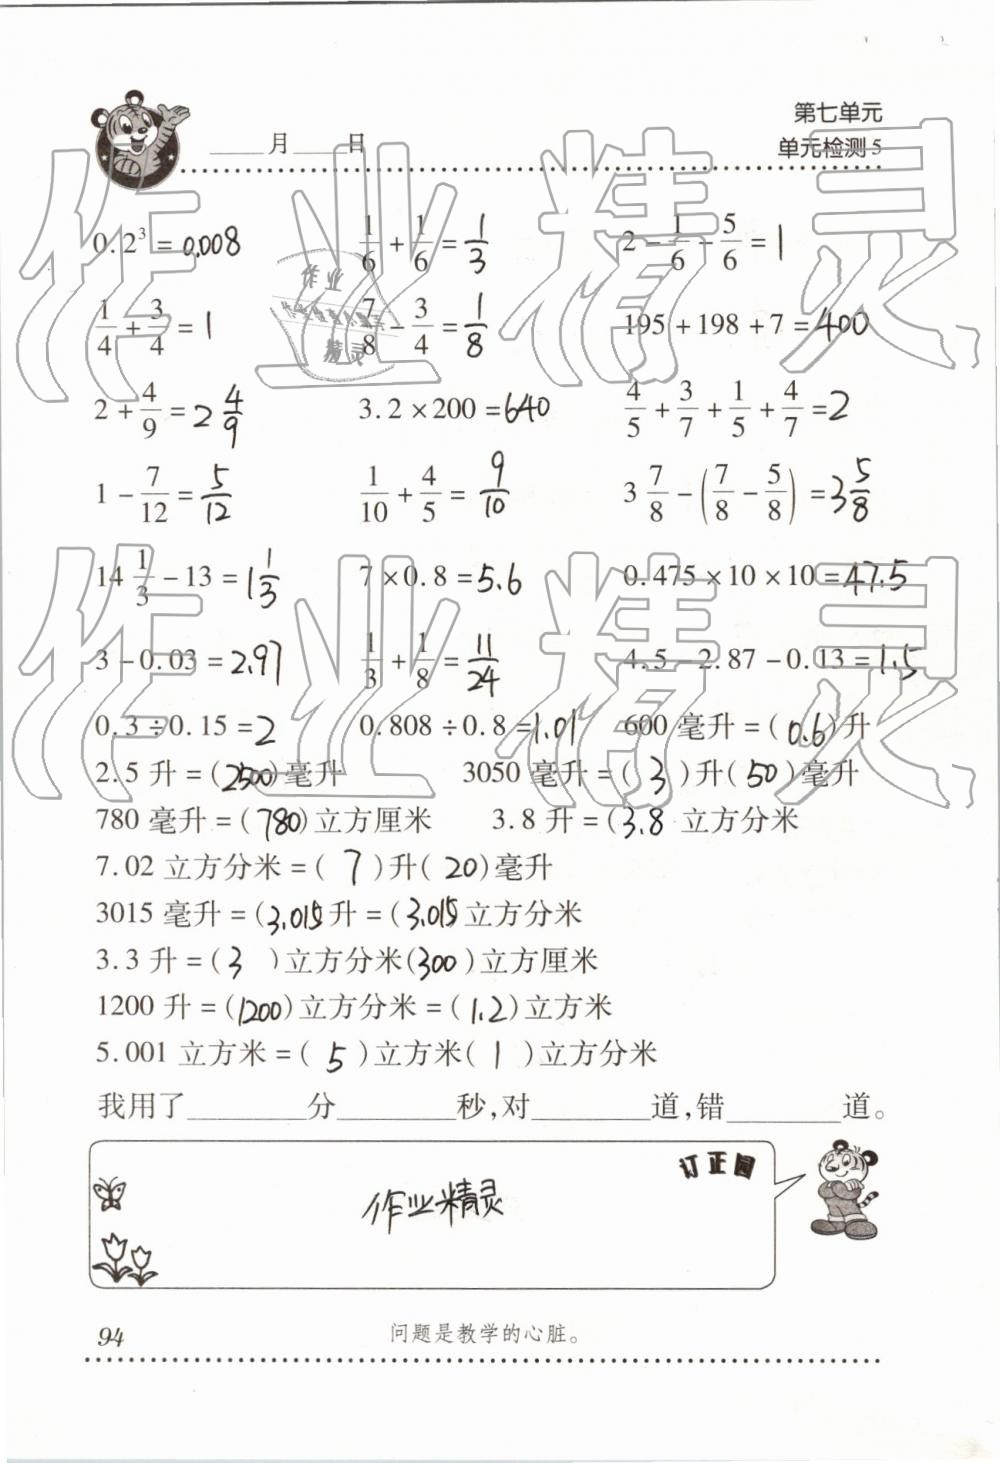 第七单元
____月____日 单元检测5
0.2³=0.008 1/6+1/6=1/3 2-1/6-5/6=1
1/4+3/4=1 7/8-3/4=1/8 195+198+7=400
2+4/9=2 4/9 3.2×200=640 4/5+3/7+1/5+4/7=2
1-7/12=5/12 1/10+4/5=9/10 3 7/8-(7/8-5/8)=3 5/8
14 1/3-13=1 1/3 7×0.8=5.6 0.475×10×10=47.5
3-0.03=2.97 1/3+1/8=11/24 4.5-2.87-0.13=1.5
0.3÷0.15=2 0.808÷0.8=1.01 600毫升=(0.6)升
2.5升=(2500)毫升 3050毫升=(3)升(50)毫升
780毫升=(780)立方厘米 3.8升=(3.8 立方分米
7.02立方分米=(7)升(20)毫升
3015毫升=(3.015升=(3.015立方分米
3.3升=(3)立方分米(300)立方厘米
1200升=(1200)立方分米=(1.2)立方米
5.001立方米=(5)立方米(1)立方分米
我用了______分______秒,对______道,错______道。
订正园
作业精灵
94 问题是教学的心脏。
作业精灵
作业精灵
作业
精灵